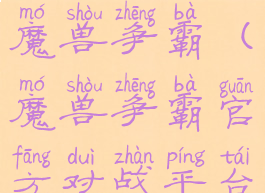 mó shòu zhēng bà
魔兽争霸（
mó shòu zhēng bà guān
魔兽争霸官
fāng duì zhàn píng tái
方对战平台